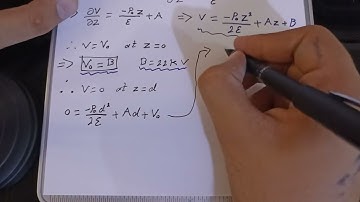 ⇒ ∂V/∂z = -ρ₀z/ε + A ⇒ V = -ρ₀z²/2ε + Az + B
∴ V = V₀ at z = 0
⇒ V₀ = B B = 22 kV
∴ V = 0 at z = d
0 = -ρ₀d²/2ε + Ad + V₀